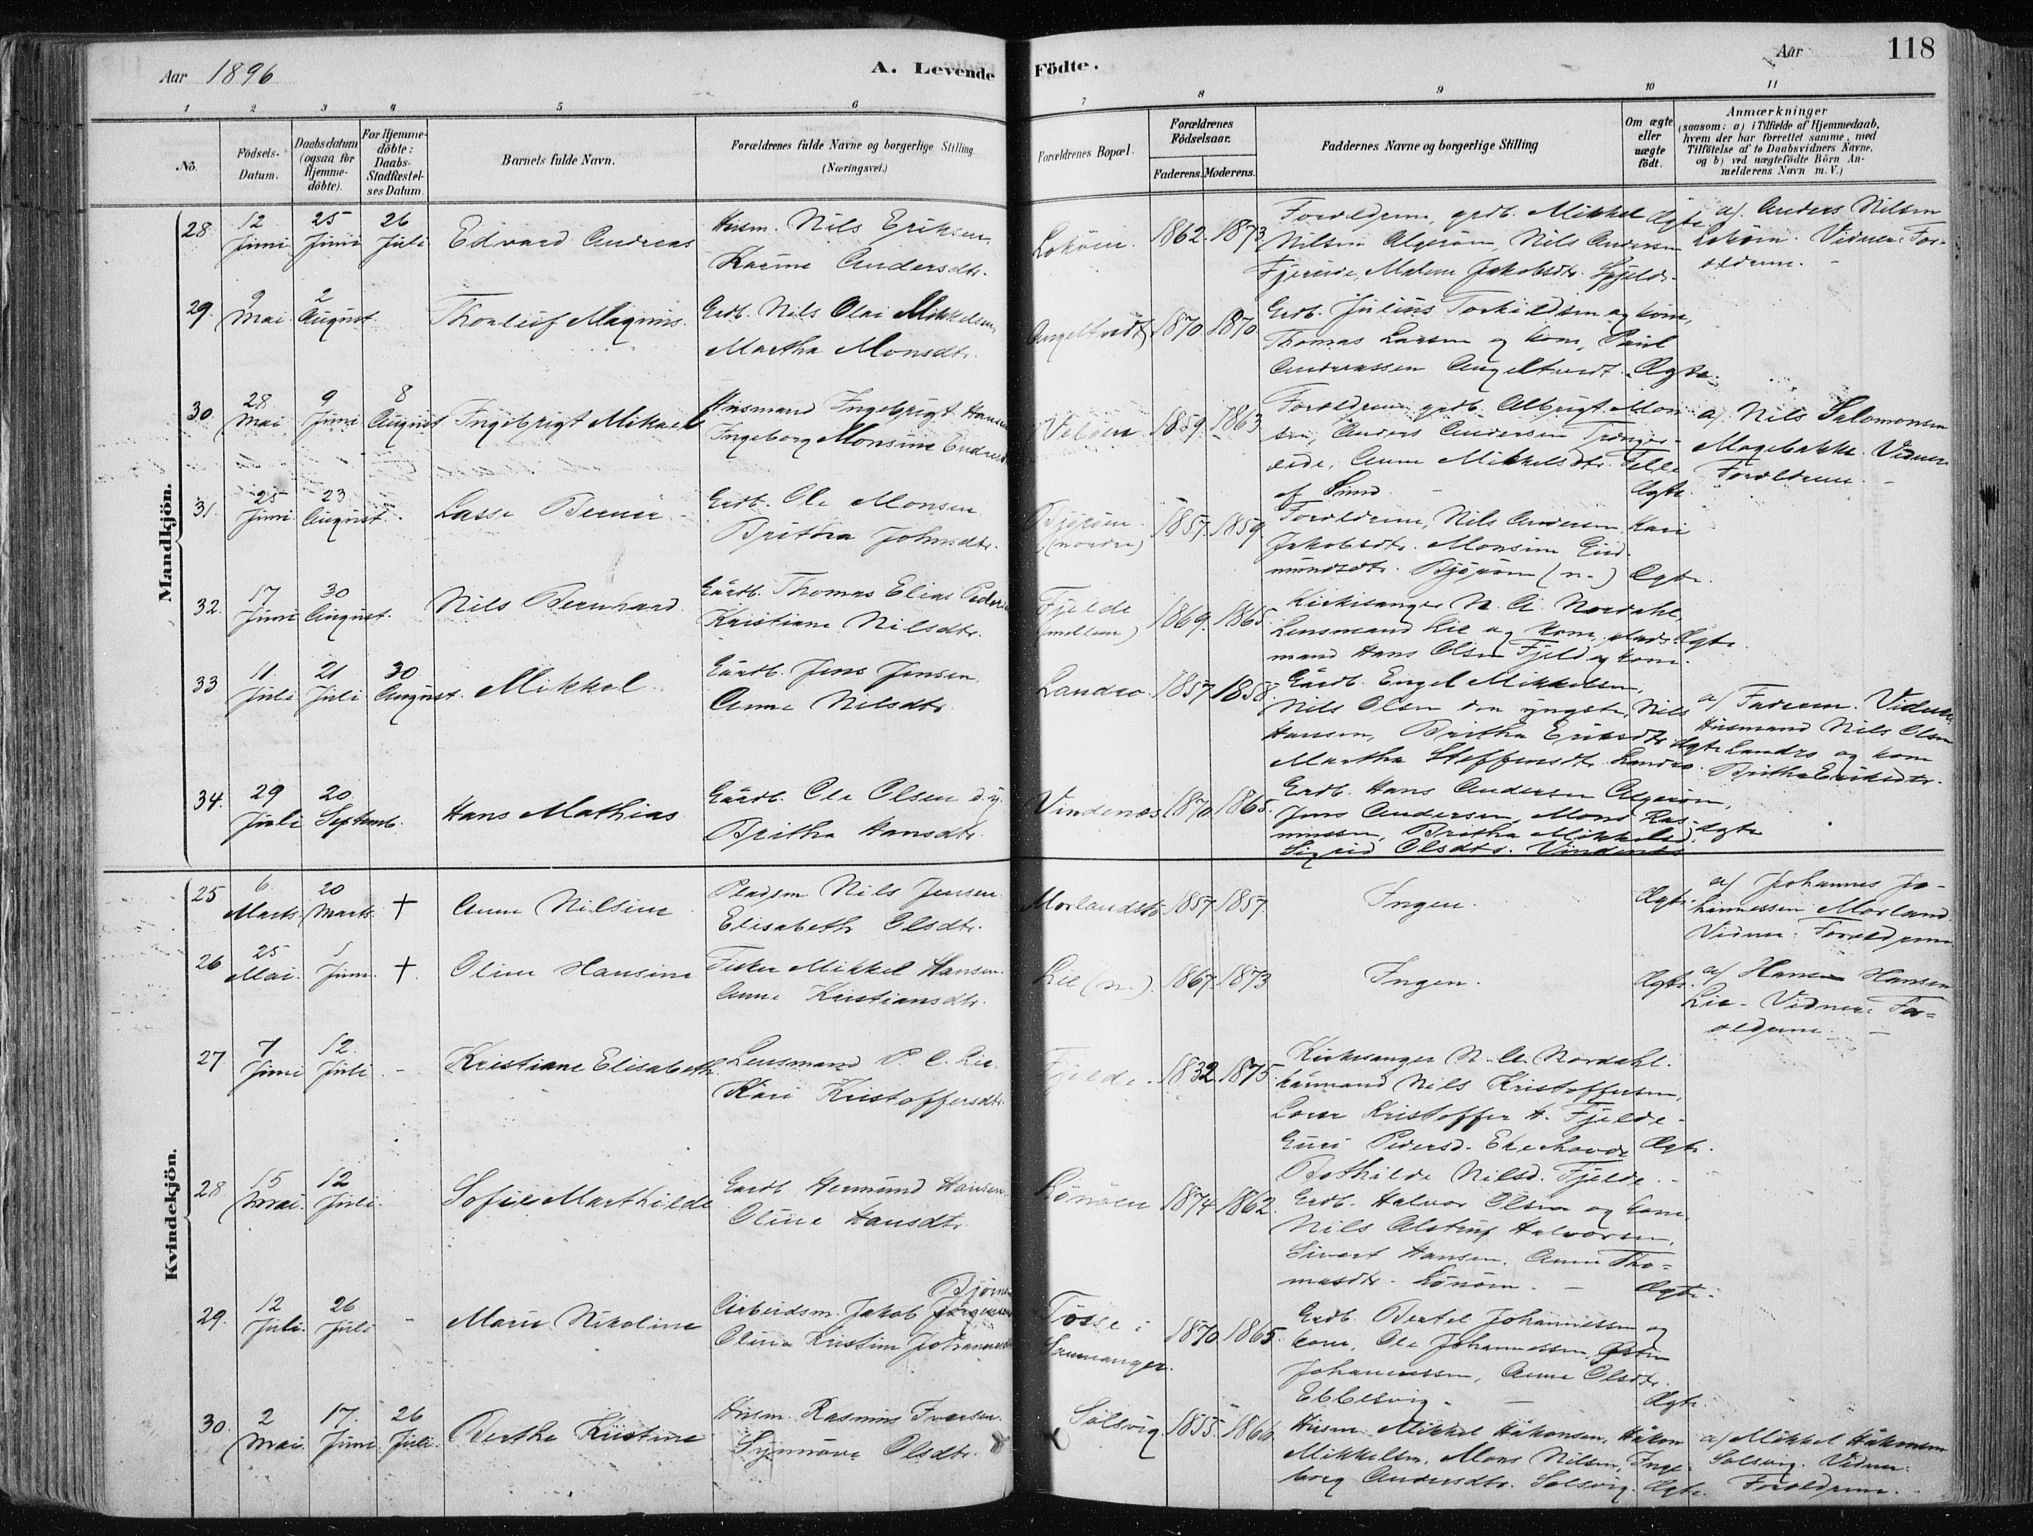 Aar 1896
A. Levende Födte.
Aar
118
1 2 3 4 5 6 7 8 9 10 11
No.
Födsels-Datum.
Daabsdatum (ogsaa for Hjemmedöbte).
For Hjemmedöbte: Daabs-Stadfæstelses Datum.
Barnets fulde Navn.
Forældrenes fulde Navne og borgerlige Stilling. (Næringsvei.)
Forældrenes Bopæl.
Forældrenes Födselsaar.
Faderens. Moderens.
Faddernes Navne og borgerlige Stilling
Om ægte eller uægte födt.
Anmærkninger
(saasom: a) i Tilfælde af Hjemmedaab,
hvem der har forrettet samme, med
Tilföielse af to Daabsvidners Navne,
og b) ved uægtefödte Börn An-
melderens Navn m. V.)
Mandkjön.
28. 12 Juni 25 Juni 26 Juli Edvard Andreas
Husm. Nils Eriksen,
Karine Andersdtr.
Lokøen. 1862. 1873
Forældrene, grdb. Mikkel
Nilsen Algerøen, Nils Andersen
Ægte
a/ Anders Nilsen
Lokøen. Vidner: For-
ældrene. -
29. 9 Mai. 2 August Thorleif Magnus.
Grdb. Nils Olai Mikkelsen,
Martha Monsdtr.
Angeltvedt 1870 1870
Grdb. Julius Torkildsen og kone,
Thomas Larsen og kone, Paul
Andreassen Angeltvedt. Ægte.
30. 28 Mai. 9 Juni 8 August Ingebrigt Mikael
Husmand Ingebrigt Hansen
Ingeborg Monsine
1859. 1863
Forældrene, grdb. Albrigt Mon-
sen, Anders Andersen
Anne Mikkelsdtr.
af Sund. -
Ægte
a/ Nils Salomonsen
Magebakke. Vidner
Forældrene. -
31. 25 Juni 23 August. Lasse Berner
Grdb. Ole Monsen
Britha Johnsdtr.
Bjørøen (nordre) 1857. 1859.
Forældrene, Nils Andersen, Kari
Jakobsdtr. Monsine Gud-
mundsdtr. Bjørøen (n.) Ægte.
32. 17 Juni 30 August. Nils Bernhard
Gårdb. Thomas Elias
Kristiane Nilsdtr.
Fjelde (mellem) 1869. 1865.
Kirkesanger N. A. Nordahl,
Lensmand Lie og kone, plads-
mand Hans Olsen Fjeld og kone.
Ægte.
33 11 Juli 21 Juli 30 August. Mikkel.
Gårdb. Jens Jensen,
Anne Nilsdtr.
Landro. 1857. 1858.
Gårdb. Engel Mikkelsen,
Nils Olsen den yngste, Nils
Hansen, Britha Eriksdtr.
Martha Steffensdtr. Landro.
Ægte
a/ Faderen. Vidner:
Husmand Nils Olsen
Landro og kone
Britha Eriksdtr.
34. 29 Juli 20 Septemb. Hans Mathias
Gårdb. Ole Olsen d.y.
Britha Hansdtr.
Vindenæs 1870 1865.
Grdb. Hans Andersen Algerøen,
Jens Andersen, Mons Ras-
mussen, Britha Mikkelsd.,
Sigrid Olsdtr. Vindenæs
Ægte
Kvindekjön.
25 6 Marts 20 Marts. + Anne Nilsine
Pladsm Nils Jensen
Elisabeth Olsdtr.
1857. 1857.
Ingen.
Ægte.
a/ Johannes Jo-
hannessen Morland
Vidner: Forældrene
26 25 Mai. 1 Juni. + Oline Hansine
Fisker Mikkel Hansen.
Anne Kristiansdtr.
Lie (n.) 1867 1873
Ingen.
Ægte.
a/ Hans Hansen
Lie. Vidner: For-
ældrene. -
27 7 Juni 12. Juli - Kristiane Elisabeth
Lensmand P. C. Lie.
Kari Kristoffersdtr.
Fjelde. 1832 1875.
Kirkesanger N. A. Nordahl.
Kårmand Nils Kristoffersen,
Lærer Kristoffer H. Fjelde-
Guri Pedersd. Ekerhovde
Bothilde Nilsd. Fjelde. -
Ægte.
28 15 Mai. 12 Juli. Sofie Marthilde
Gardb. Hermund Hansen
Oline Hansdtr.
Lønøen 1874 1862.
Grdb. Halvor Olsen og kone.
Nils Alstrup Halvorsen,
Sivert Hansen. Anne Tho-
masdtr. Lønøen. -
Ægte.
29. 12 Juli. 26 Juli - Marie Nikoline
Arbeidsm. Jakob
Oline Kristine
Tøsse i
Samnanger. 1870 1865.
Grdb. Bertel Johannessen og
kone, Ole Johannessen,
Johannessen, Anne Olsdtr.
Ebbesvig. -
Ægte.
30. 2 Mai 17. Juni 26 Juli. Berthe Kristine
Husm. Rasmus Iversen.
Synnøve Olsdtr.
Solsvig 1855. 1866
Husm. Mikkel Håkonsen, Håkon
Mikkelsen, Mons Nilsen, Inge-
borg Andersdtr. Solsvig. Ægte.
a/ Mikkel Håkonsen
Solsvig. Vidner:
Forældrene. -